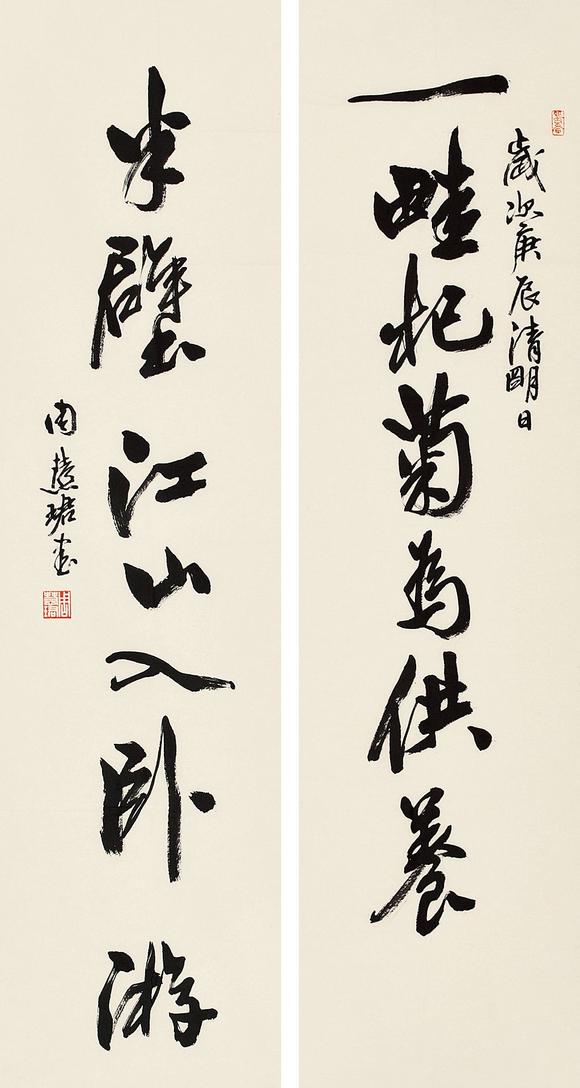 歲次庚辰清明日
一畦杞菊為供養
半壁江山入卧游
周慧珺書